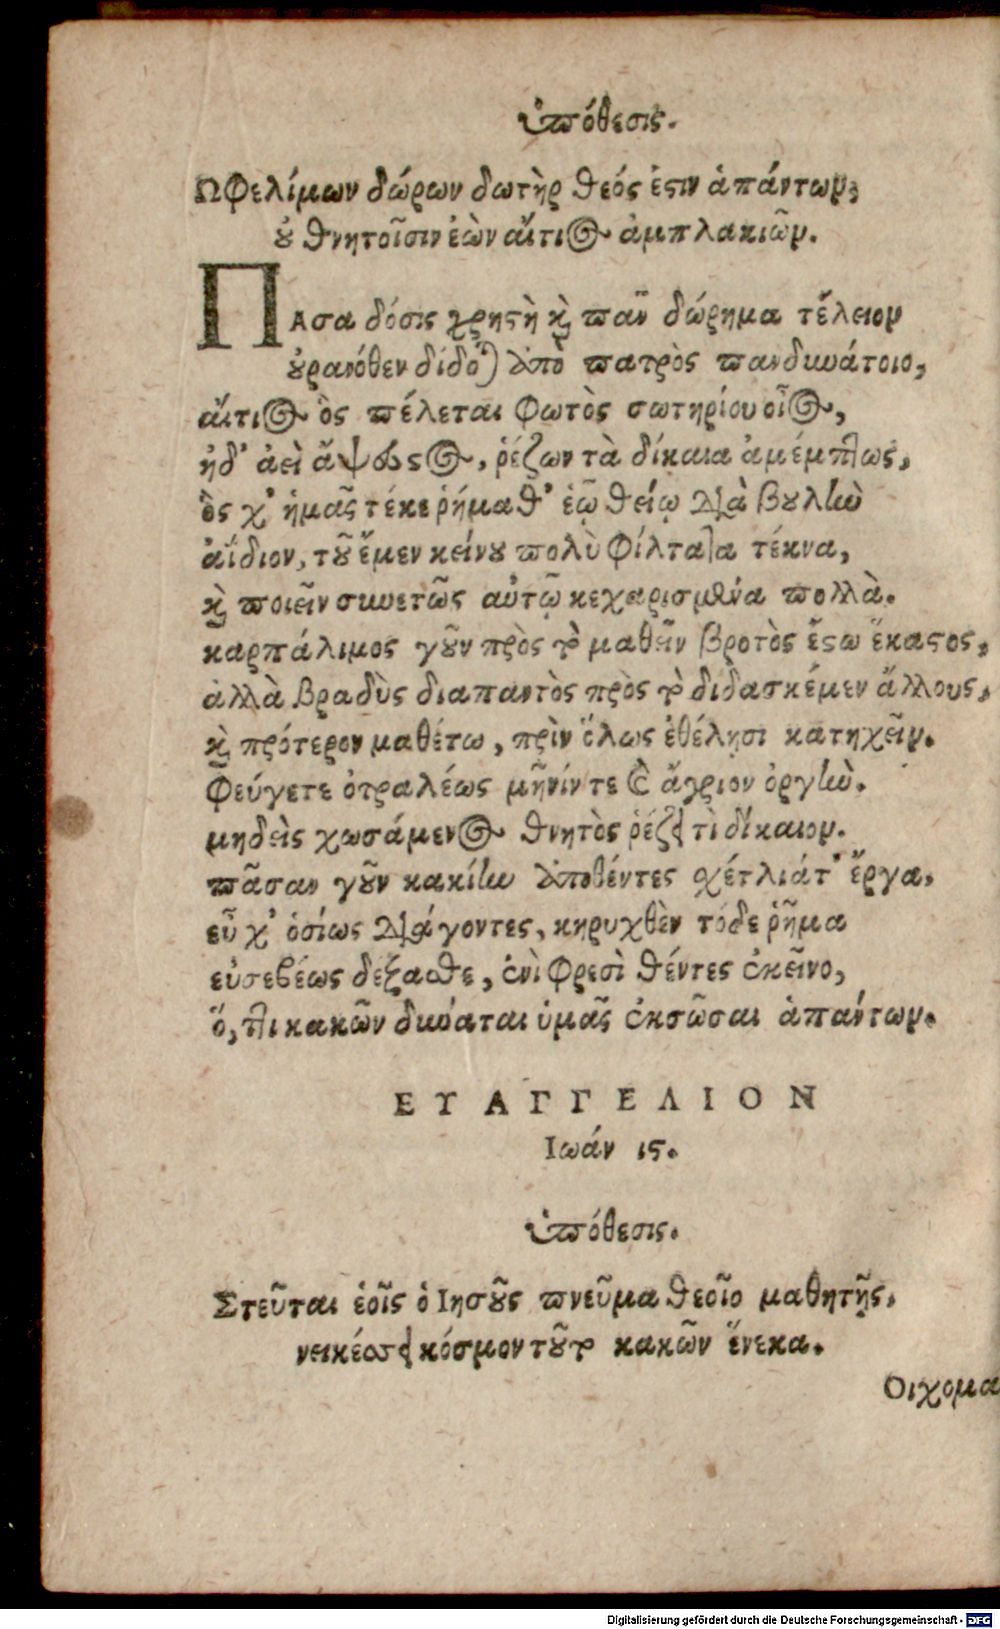 ὑπόθεσις.
Ωφελίμων δώρων δωτὴρ θεός ἐϛιν ἁπάντων,
ȣ θνητοῖσιν ἐὼν αἴτιος ἀμπλακιῶν.
ΠΑσα δόσις χρηϛὴ ϗ πᾶν δώρημα τέλειον
ȣρανόθεν δίδοται ἀπὸ πατρὸς πανδυνάτοιο,
αἴτιος ὃς πέλεται φωτὸς σωτηρίου οἶος,
ἠδ' ἀεὶ ἄψευϛος, ῥέζων τὰ δίκαια ἀμέμπτως,
ὃς χ' ἡμᾶς τέκε ῥήμαθ' ἑῷ θείῳ διὰ βȣλὴν
ἀΐδιον, τȣ͂ ἔμεν κείνȣ πολὺ φίλτατα τέκνα,
ϗ ποιεῖν συνετῶς αὐτῷ κεχαρισμένα πολλὰ.
καρπάλιμος γȣ͂ν πρὸς τὸ μαθεῖν βροτὸς ἔϛω ἕκαϛος,
ἀλλὰ βραδὺς διαπαντὸς πρὸς τὸ διδασκέμεν ἄλλους,
ϗ πρότερον μαθέτω, πρὶν ὅλως ἐθέλησι κατηχεῖν.
Φεύγετε ὀτραλέως μῆνίν τε καὶ ἄγριον ὀργὴν.
μηδεὶς χωσάμενος θνητὸς ῥέζει τὶ δίκαιον.
πᾶσαν γȣ͂ν κακίην ἀποθέντες σχέτλιάτ' ἔργα,
εὖ χ' ὁσίως διάγοντες, κηρυχθὲν τόδε ῥῆμα
εὐσεβέως δέξασθε, ἐνὶ φρεσὶ θέντες ἐκεῖνο,
ὅ,τι κακῶν δύναται ὑμᾶς ἐκσῶσαι ἁπάντων.
ΕΥΑΓΓΕΛΙΟΝ
Ιωάν 15.
ὑπόθεσις.
Στεῦται ἑοῖς ὁ Ιησȣ͂ς πνεῦμα θεοῖο μαθητῇς,
νεικέσει κόσμον τȣ͂το κακῶν ἕνεκα.
Οιχομα
Digitalisierung gefördert durch die Deutsche Forschungsgemeinschaft - DFG